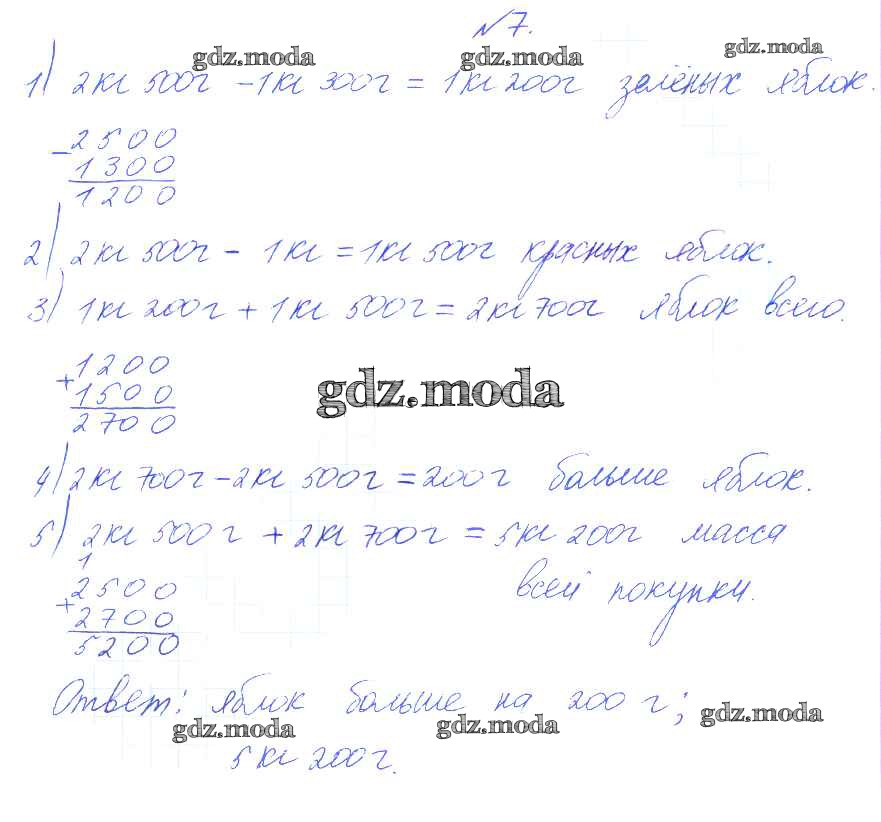 №7.
gdz.moda gdz.moda gdz.moda
1) 2кг 500г - 1кг 300г = 1кг 200г зелёных яблок.
- 2500
1300
1200
2) 2кг 500г - 1кг = 1кг 500г красных яблок.
3) 1кг 200г + 1кг 500г = 2кг 700г яблок всего.
1200
+ 1500
2700
gdz.moda
4) 2кг 700г - 2кг 500г = 200г больше яблок.
5) 2кг 500г + 2кг 700г = 5кг 200г масса
всей покупки.
1
2500
+ 2700
5200
Ответ: яблок больше на 200 г;
gdz.moda gdz.moda gdz.moda
5кг 200г.